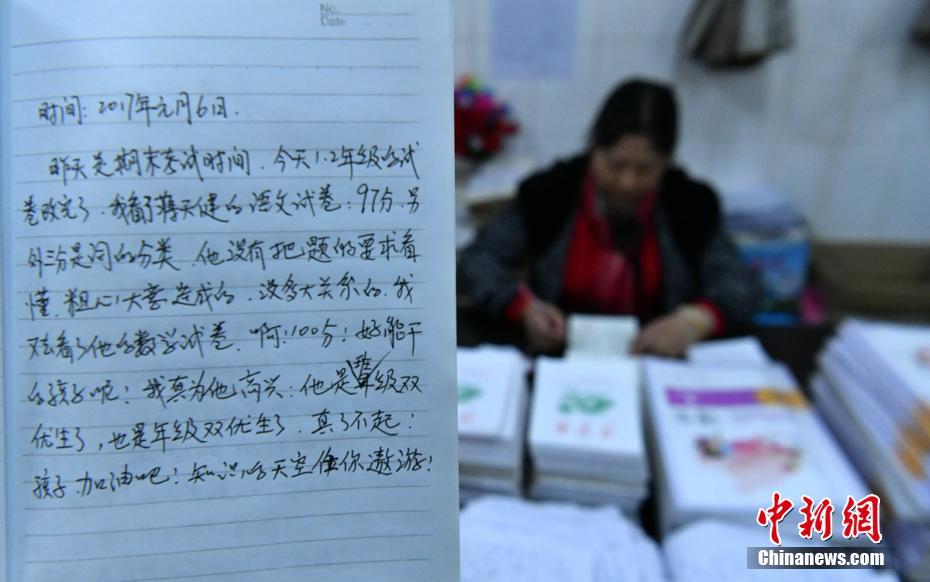 No.
Date
时间: 2017年元月6日.
昨天是期末考试时间. 今天1.2年级的试
卷改完了. 我看了蒋天健的语文试卷: 97分. 另
外三分是词的分类. 他没有把题的要求看
懂, 粗心大意造成的. 没多大关系的. 我
又去看了他的数学试卷. 啊! 100分! 好能干
的孩子呢! 我真为他高兴: 他是班级双
优生了, 也是年级双优生了. 真了不起:
孩子加油吧! 知识的天空任你遨游!
中新网
Chinanews.com